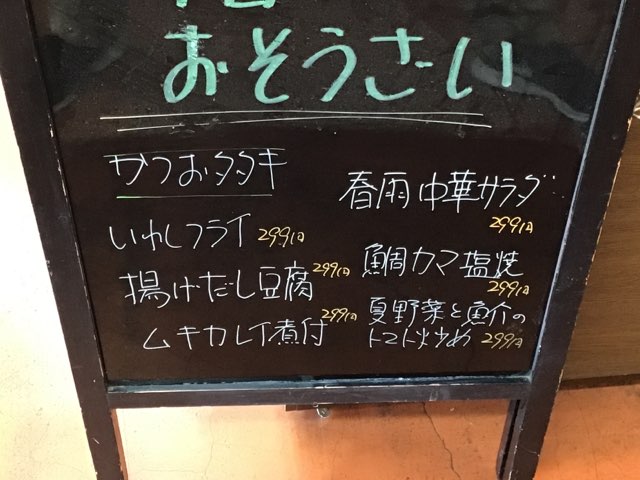 おそうざい
かつおタタキ
いわしフライ 299円
揚げだし豆腐 299円
ムキカレイ煮付 299円
春雨中華サラダ
299円
鯛カマ塩焼
299円
夏野菜と魚介の
トマト炒め 299円